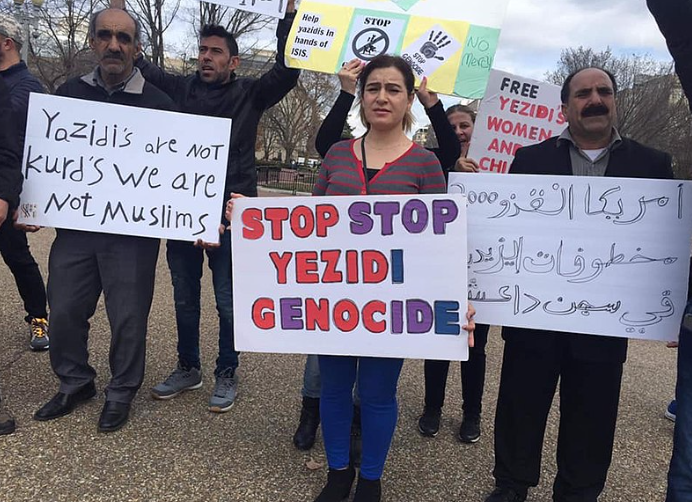 Help
yazidis in
hands of
ISIS.
STOP
NO
Merci
Yazidi's are NOT
Kurd's we are
Not Muslims
STOP STOP
YEZIDI
GENOCIDE
FREE
YEZIDI'S
WOMEN
AND
CHI
أمريكا انقذو 3000
مخطوفات ايزيد
في سجن داعش